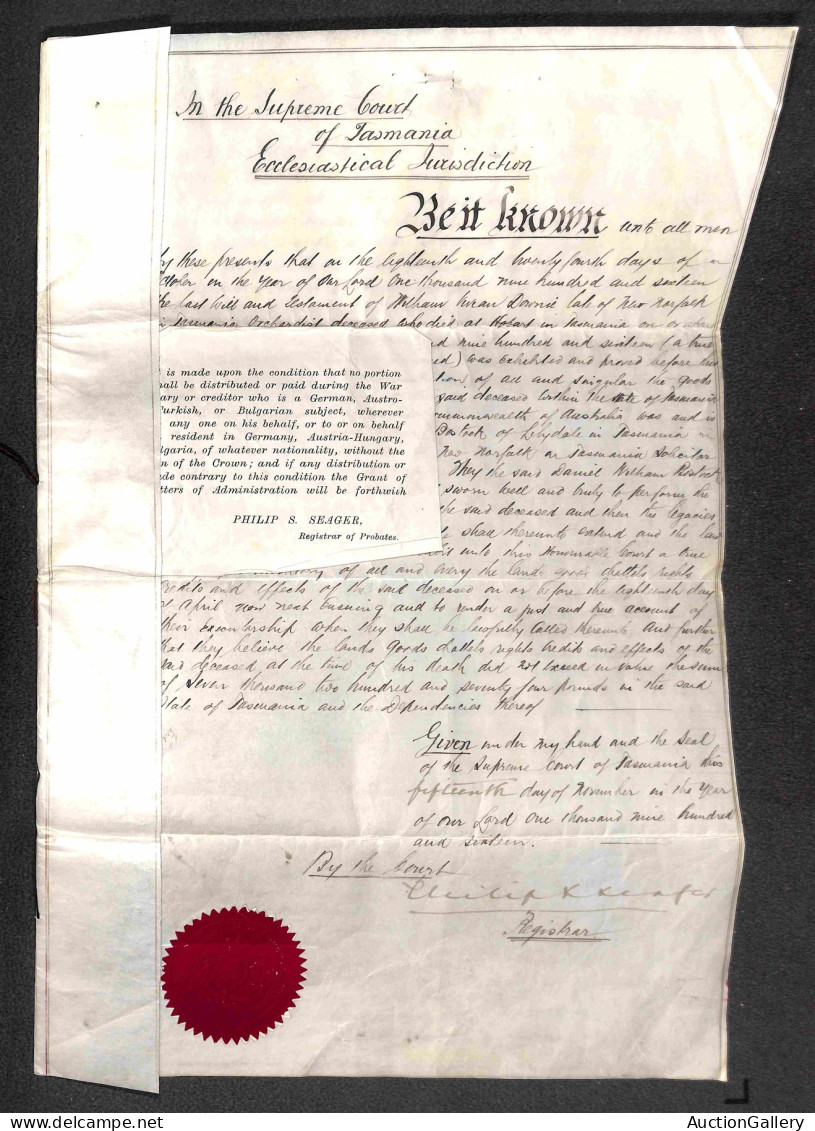 In the Supreme Court
of Tasmania
Ecclesiastical Jurisdiction
Be it known unto all men
by these presents that on the Eighteenth and twenty fourth days of
in the year of Our Lord One thousand nine hundred and sixteen
the last Will and Testament of William Downie late of New Norfolk
in Tasmania Orchardist deceased who died at Hobart in Tasmania on or about
nine hundred and sixteen (a true
was exhibited and proved before this
of all and singular the goods
said deceased within the State of Tasmania
Commonwealth of Australia was and is
Bostock of Lilydale in Tasmania
New Norfolk in Tasmania Solicitor
They the said Daniel William Bostock
sworn well and truly to perform the
the said deceased and then the legacies
shall thereunto extend and the law
unto this Honourable Court a true
of all and every the lands goods chattels rights
credits and effects of the said deceased on or before the eighteenth day
of April now next ensuing and to render a just and true account of
their executorship when they shall be lawfully called thereunto And further
that they believe the lands goods chattels rights credits and effects of the
said deceased at the time of his death did not exceed in value the sum
of Seven thousand two hundred and seventy four pounds in the said
State of Tasmania and the Dependencies thereof
is made upon the condition that no portion
all be distributed or paid during the War
ary or creditor who is a German, Austro-
urkish, or Bulgarian subject, wherever
any one on his behalf, or to or on behalf
resident in Germany, Austria-Hungary,
lgaria, of whatever nationality, without the
n of the Crown; and if any distribution or
de contrary to this condition the Grant of
tters of Administration will be forthwith
PHILIP S. SEAGER,
Registrar of Probates.
Given under my hand and the Seal
of the Supreme Court of Tasmania this
fifteenth day of November in the Year
of our Lord One thousand nine hundred
and sixteen.
By the Court
Philip S Seager
Registrar
AuctionGallery